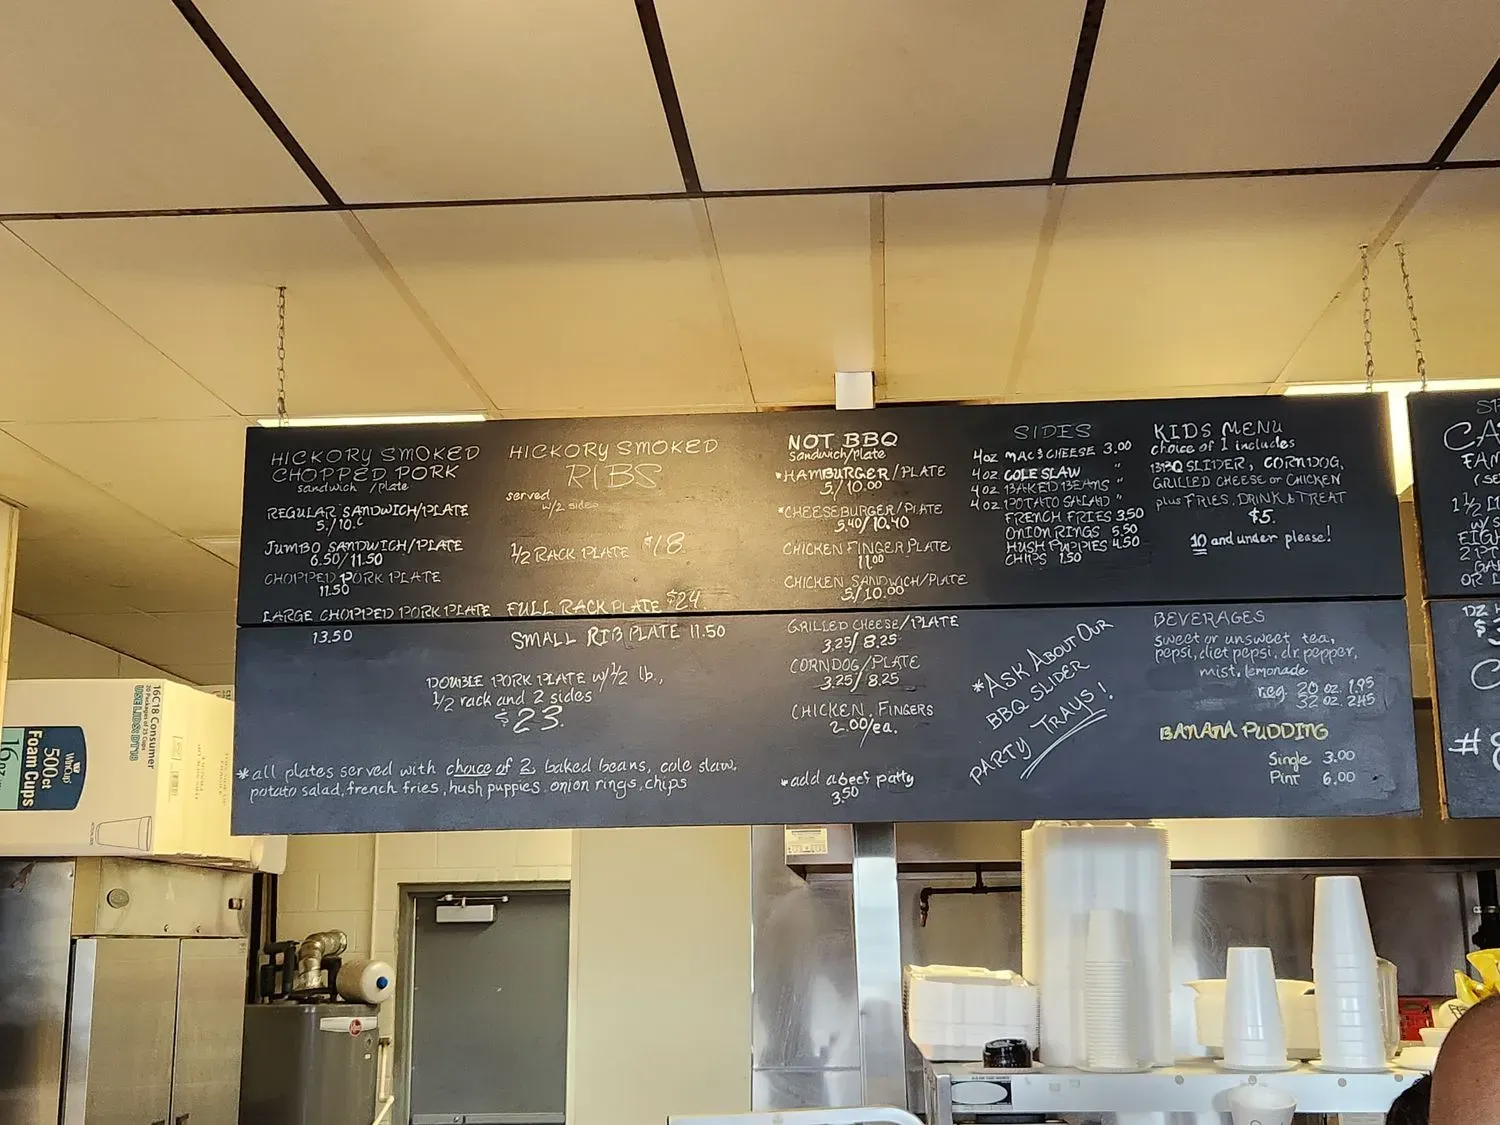 HICKORY SMOKED
CHOPPED PORK
sandwich /plate
REGULAR SANDWICH/PLATE
5./10.
JUMBO SANDWICH/PLATE
6.50/11.50
CHOPPED PORK PLATE
11.50
LARGE CHOPPED PORK PLATE
13.50
HICKORY SMOKED
RIBS
served
w/2 sides
1/2 RACK PLATE $18.
FULL RACK PLATE $24.
SMALL RIB PLATE 11.50
DOUBLE PORK PLATE w/ 1/2 lb.,
1/2 rack and 2 sides
$23.
*all plates served with choice of 2, baked beans, cole slaw,
potato salad, french fries, hush puppies, onion rings, chips
NOT BBQ
Sandwich/plate
*HAMBURGER/PLATE
5./10.00
*CHEESEBURGER/PLATE
5.40/10.40
CHICKEN FINGER PLATE
11.00
CHICKEN SANDWICH/PLATE
5./10.00
GRILLED CHEESE/PLATE
3.25/8.25
CORNDOG/PLATE
3.25/8.25
CHICKEN FINGERS
2.00/ea.
*add a beef patty
3.50
SIDES
4oz MAC & CHEESE 3.00
4oz COLE SLAW "
4oz BAKED BEANS "
4oz POTATO SALAD "
FRENCH FRIES 3.50
ONION RINGS 5.50
HUSH PUPPIES 4.50
CHIPS 1.50
*ASK ABOUT OUR
BBQ SLIDER
PARTY TRAYS!
KIDS MENU
choice of 1 includes
BBQ SLIDER, CORNDOG,
GRILLED CHEESE or CHICKEN
plus FRIES, DRINK & TREAT
$5.
10 and under please!
BEVERAGES
sweet or unsweet tea,
pepsi, diet pepsi, dr. pepper,
mist, lemonade
reg. 20 oz. 1.95
32 oz. 2.45
BANANA PUDDING
Single 3.00
Pint 6.00
CA
FAM
1 1/2
w/
2 PT
OR
DZ
$
#
16C18 Consumer
20 Packages of 25 Cups
USE LIDS: DT16
WinCup
500ct
Foam Cups
16oz